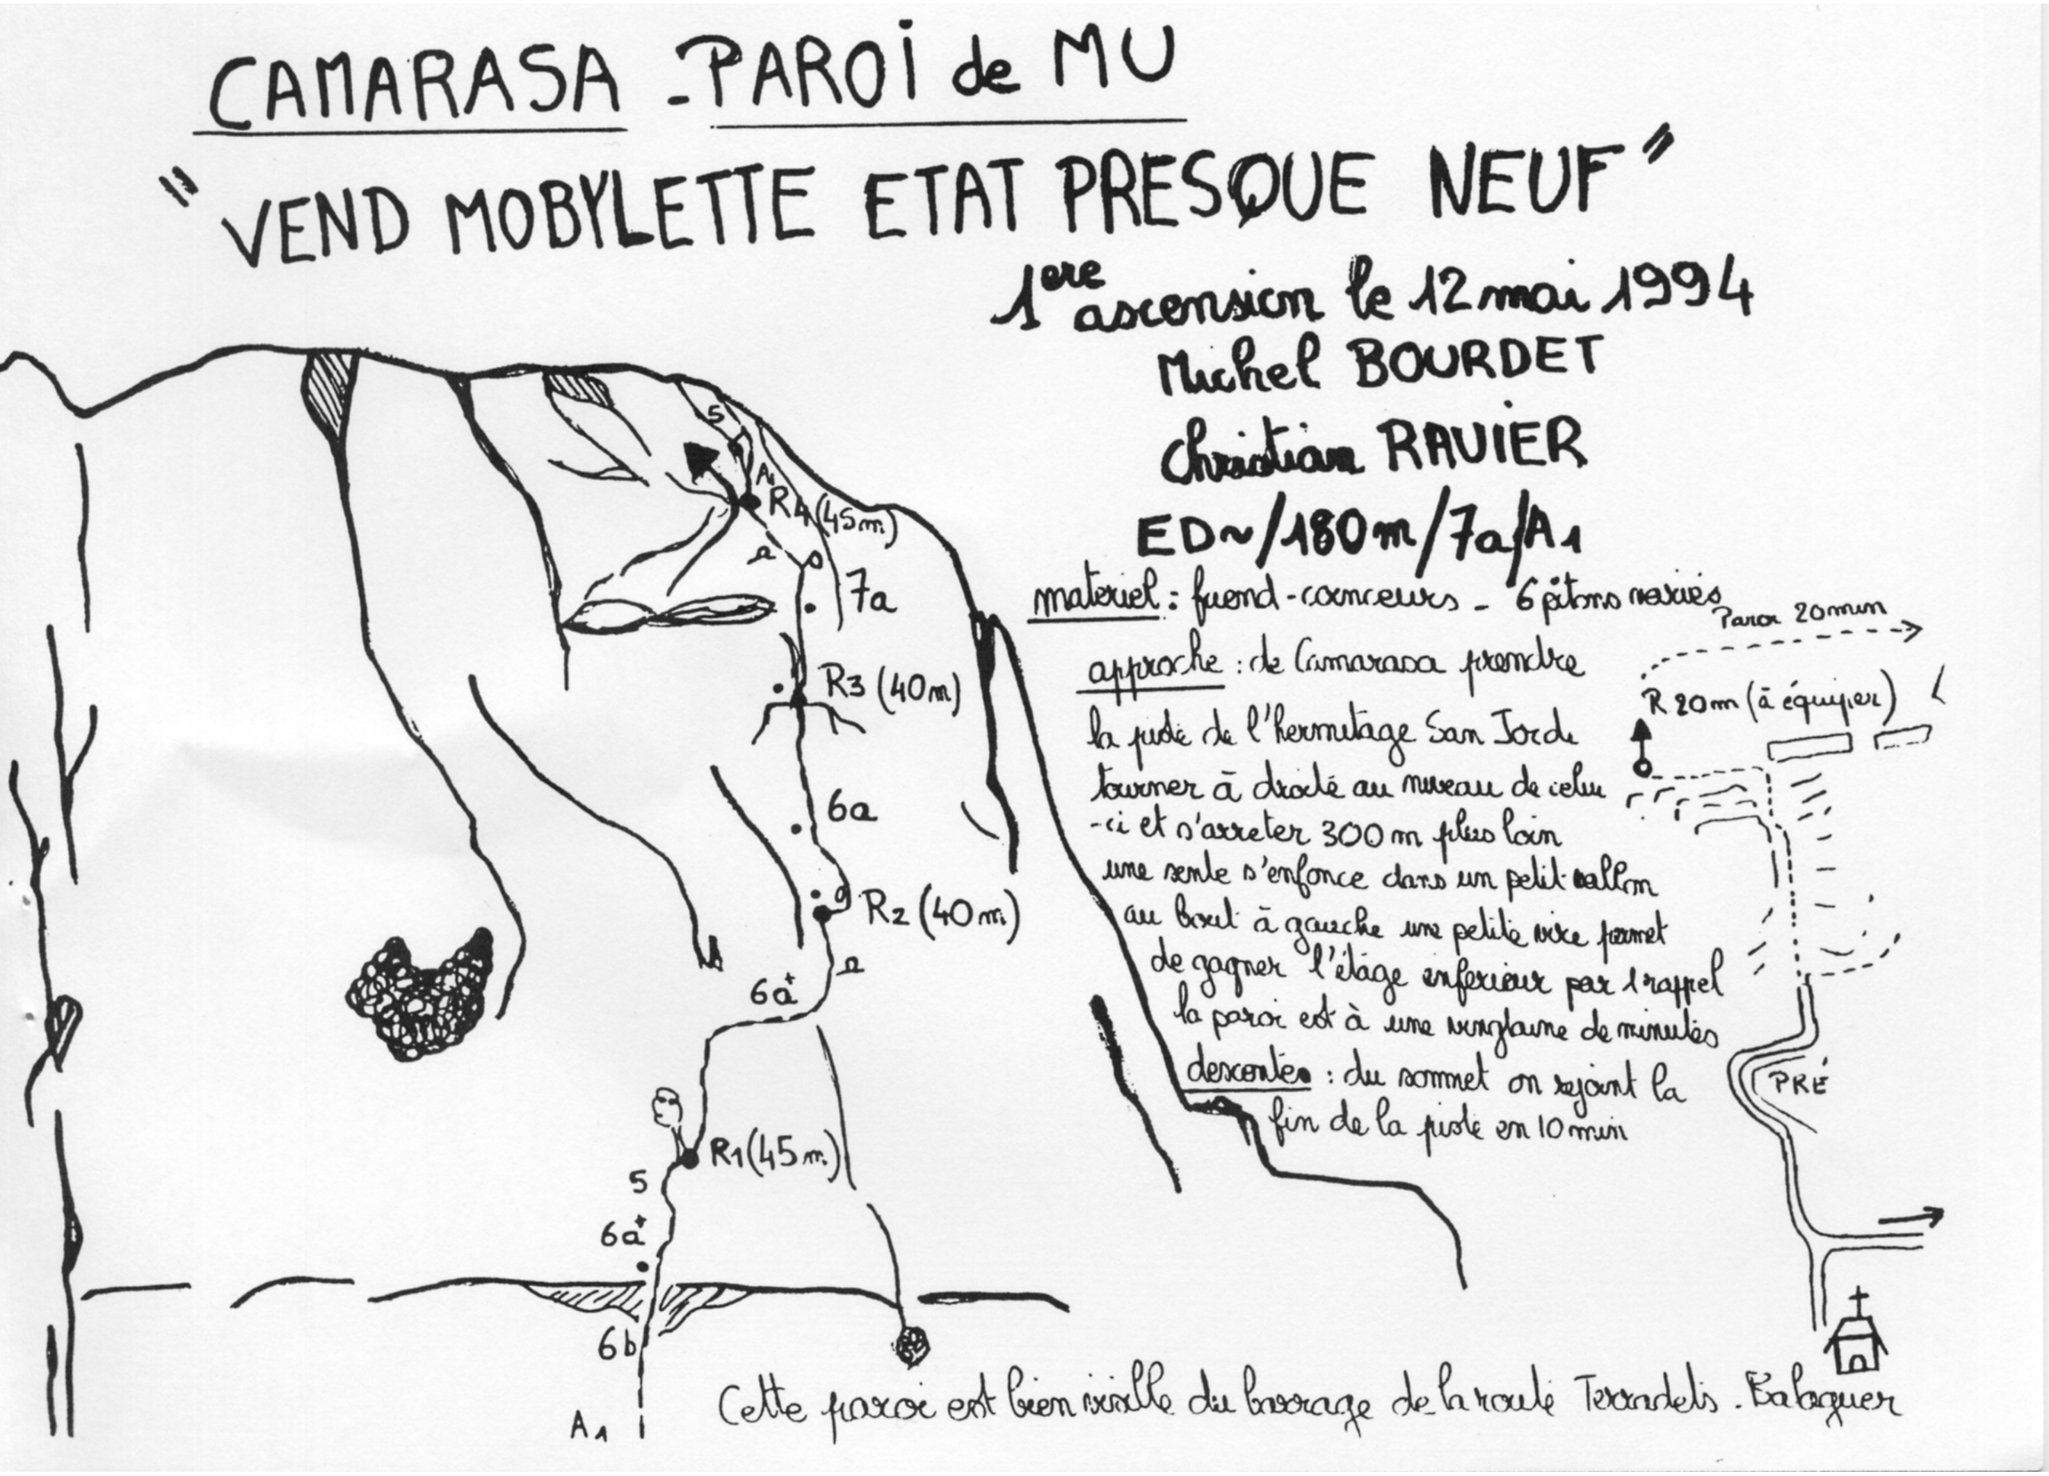 CAMARASA - PAROI de MU
"VEND MOBYLETTE ETAT PRESQUE NEUF"
1ere ascension le 12 mai 1994
Michel BOURDET
Christian RAVIER
ED~/180m/7a/A1
matériel : friend-coinceurs - 6 pitons variés
approche : de Camarasa prendre
la piste de l'hermitage San Jordi
tourner à droite au niveau de celui
-ci et s'arreter 300 m plus loin
une sente s'enfonce dans un petit vallon
au bout à gauche une petite vire permet
de gagner l'étage inferieur par 1 rappel
la paroi est à une vingtaine de minutes
descente : du sommet on rejoint la
fin de la piste en 10 min
5
A1
R4 (45m)
7a
R3 (40m)
6a
R2 (40m)
6a+
R1 (45m)
5
6a+
6b
A1
Paroi 20 min
R 20m (à équiper)
PRÉ
Cette paroi est bien visible du barrage de la route Terradets - Balaguer